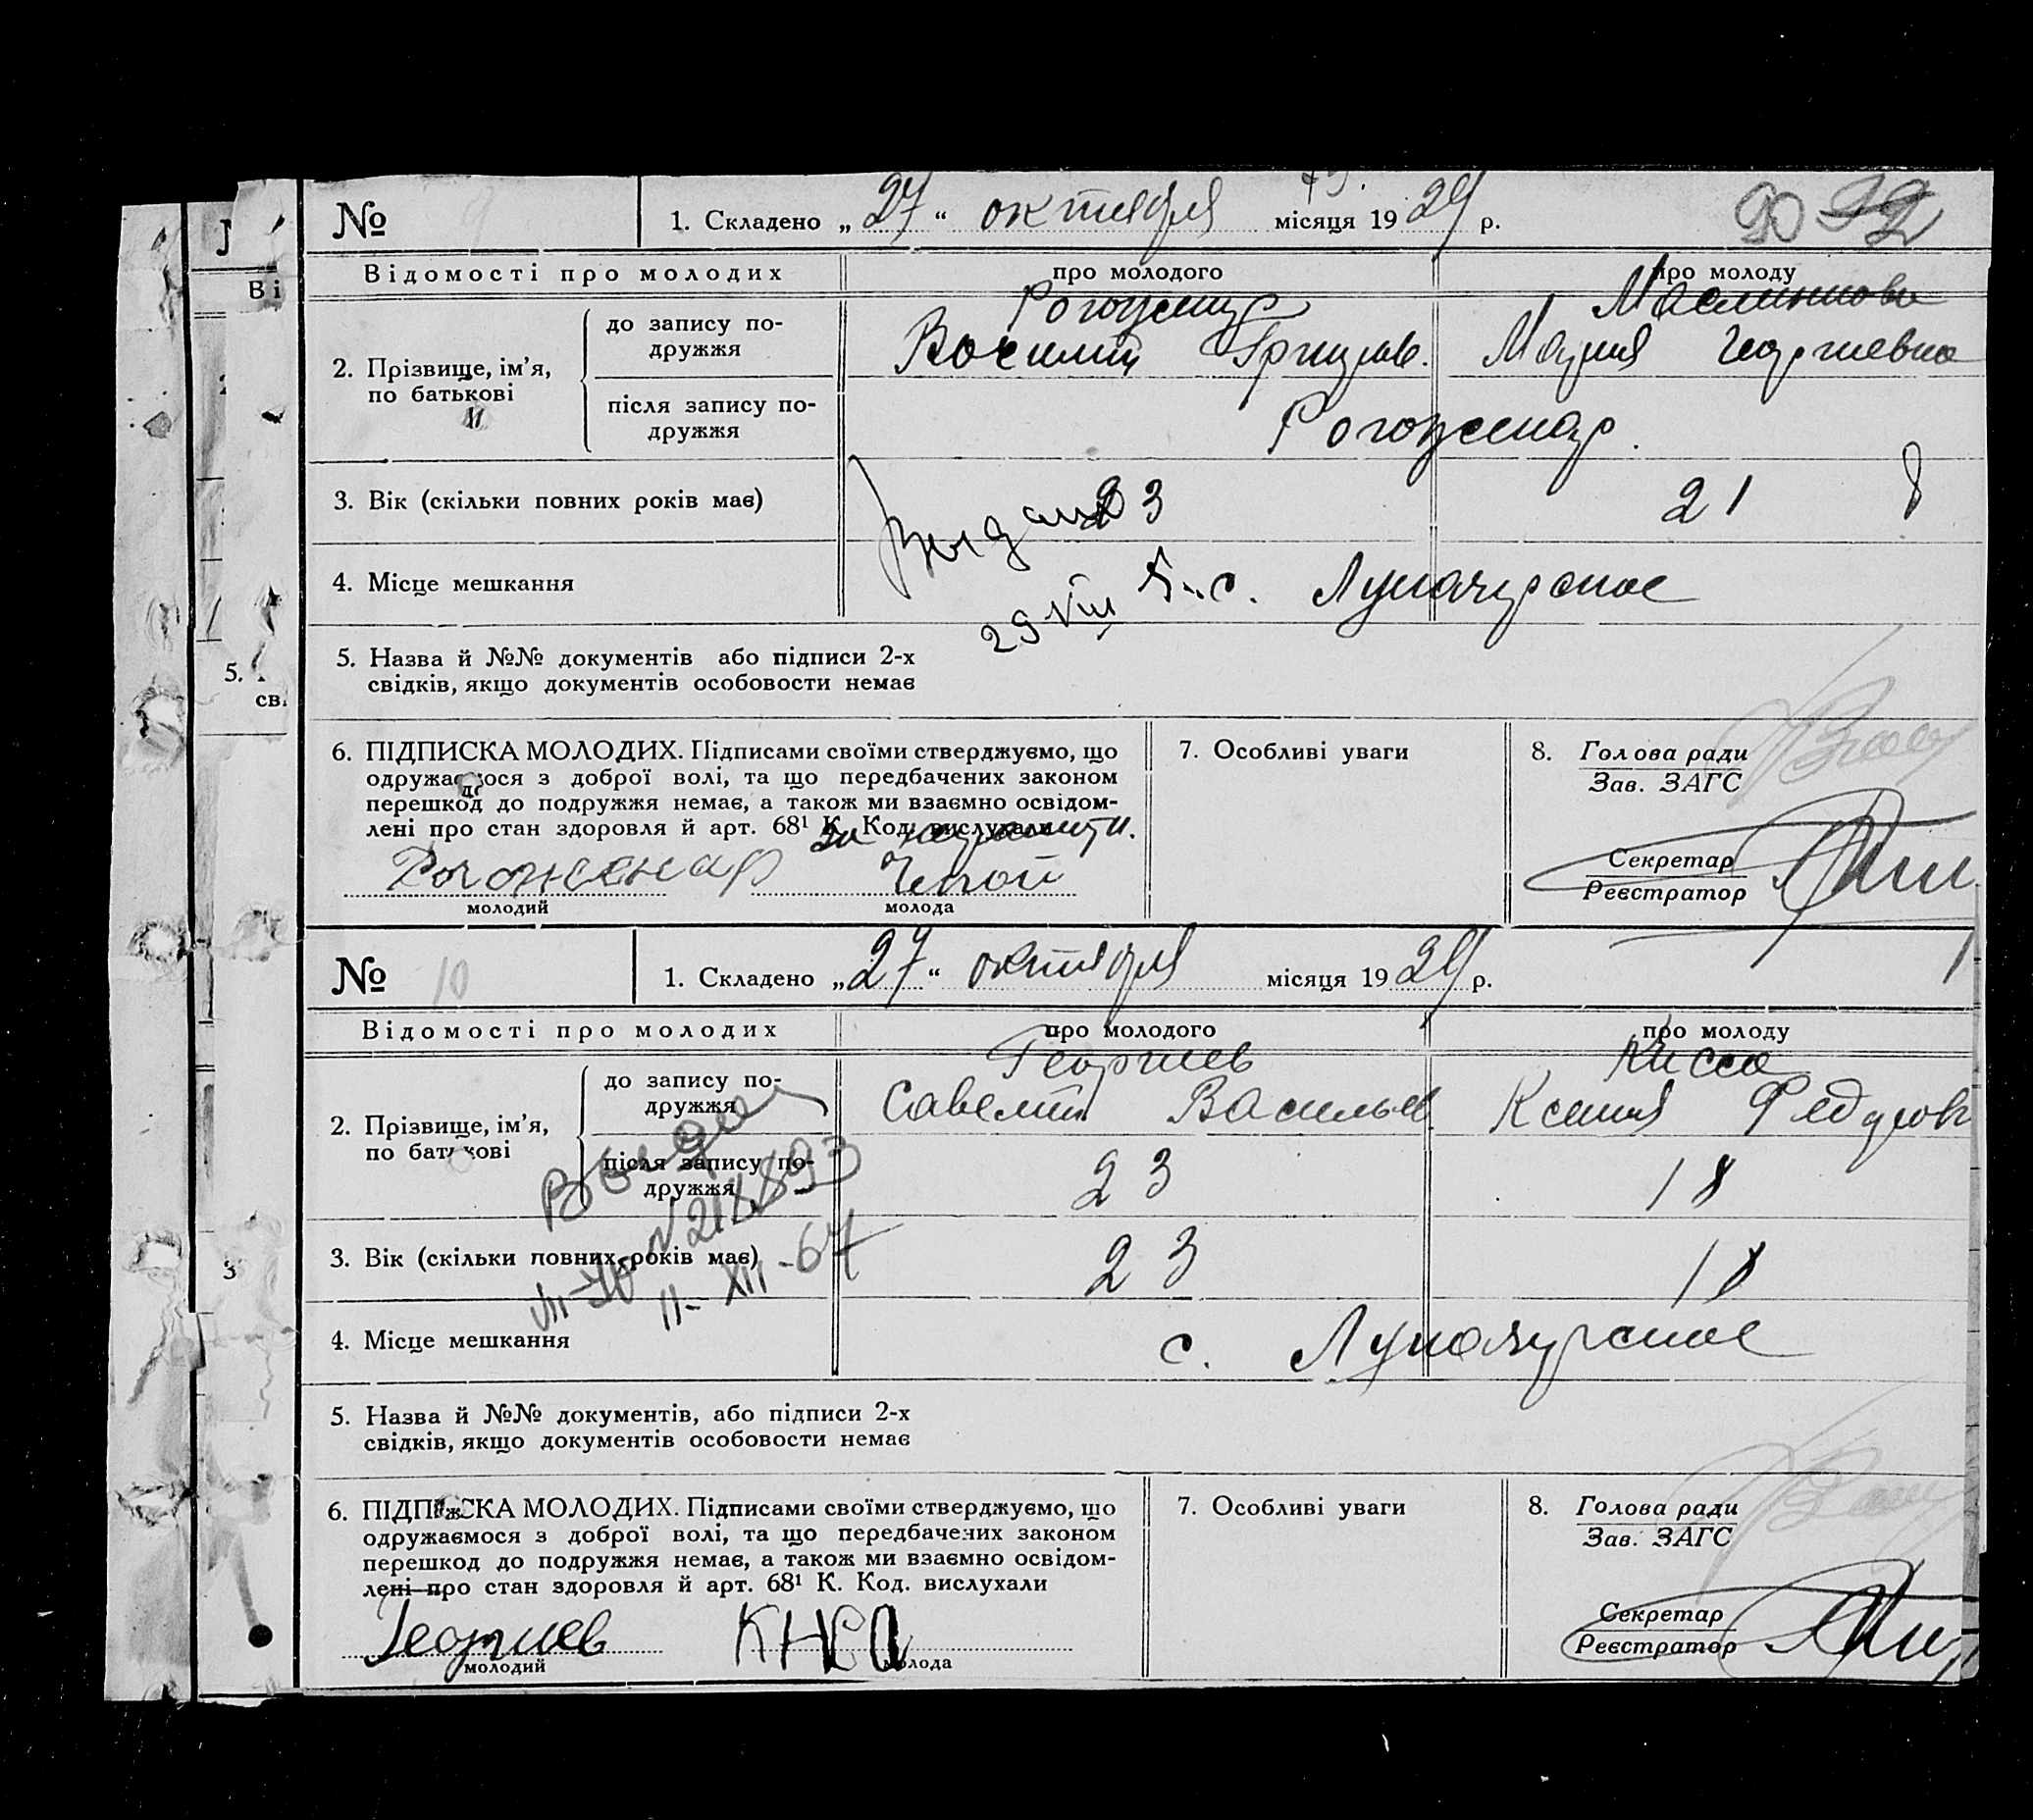 № 1. Складено „27“ октября місяця 1929 р. 90
Відомості про молодих про молодого про молоду
2. Прізвище, ім’я, по батькові
до запису подружжя
Василий Григорьев. Мария Георгиевна
після запису подружжя
3. Вік (скільки повних років має) 23 21
4. Місце мешкання с. Луначарское
29 VIII
5. Назва й №№ документів або підписи 2-х
свідків, якщо документів особовости немає
6. ПІДПИСКА МОЛОДИХ. Підписами своїми стверджуємо, що
одружаємося з доброї волі, та що передбачених законом
перешкод до подружжя немає, а також ми взаємно освідом-
лені про стан здоровля й арт. 68¹ К. Код. вислухали
за неграмотн.
Рогожснар
молодий молода
7. Особливі уваги
8. Голова ради
Зав. ЗАГС
Секретар
Реєстратор
№ 10 1. Складено „27“ октября місяця 1929 р.
Відомості про молодих про молодого про молоду
Георгиев Кисса
2. Прізвище, ім’я, по батькові
до запису подружжя
Савелий Васильев Ксения Федоров
після запису подружжя
23 18
Выдан
№218893
11-XII-67
3. Вік (скільки повних років має) 23 18
4. Місце мешкання с. Луначарское
5. Назва й №№ документів, або підписи 2-х
свідків, якщо документів особовости немає
6. ПІДПИСКА МОЛОДИХ. Підписами своїми стверджуємо, що
одружаємося з доброї волі, та що передбачених законом
перешкод до подружжя немає, а також ми взаємно освідом-
лені про стан здоровля й арт. 68¹ К. Код. вислухали
Георгиев КНСА
молодий молода
7. Особливі уваги
8. Голова ради
Зав. ЗАГС
Секретар
Реєстратор